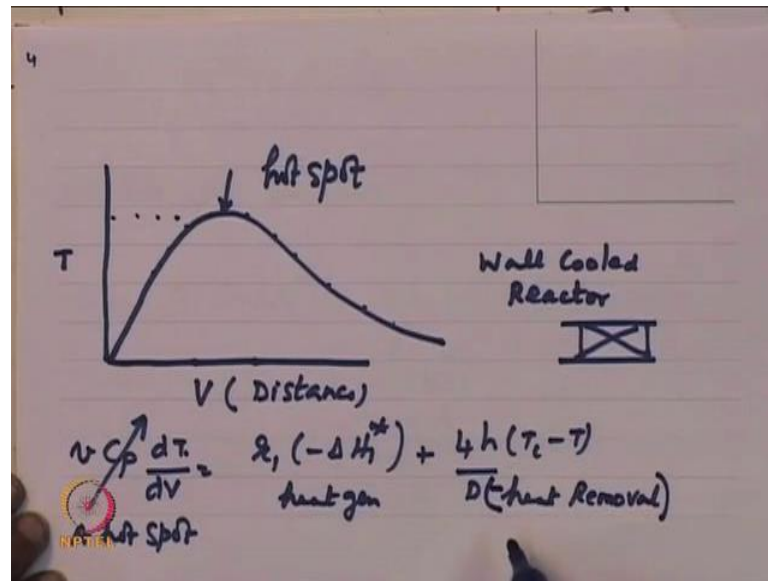 4
hot spot
T
Wall Cooled
Reactor
V (Distance)
v Cp dT/dV = r₁ (-ΔH₁*) + 4h/D (Tc - T)
heat gen (-heat Removal)
hot spot
NPTEL